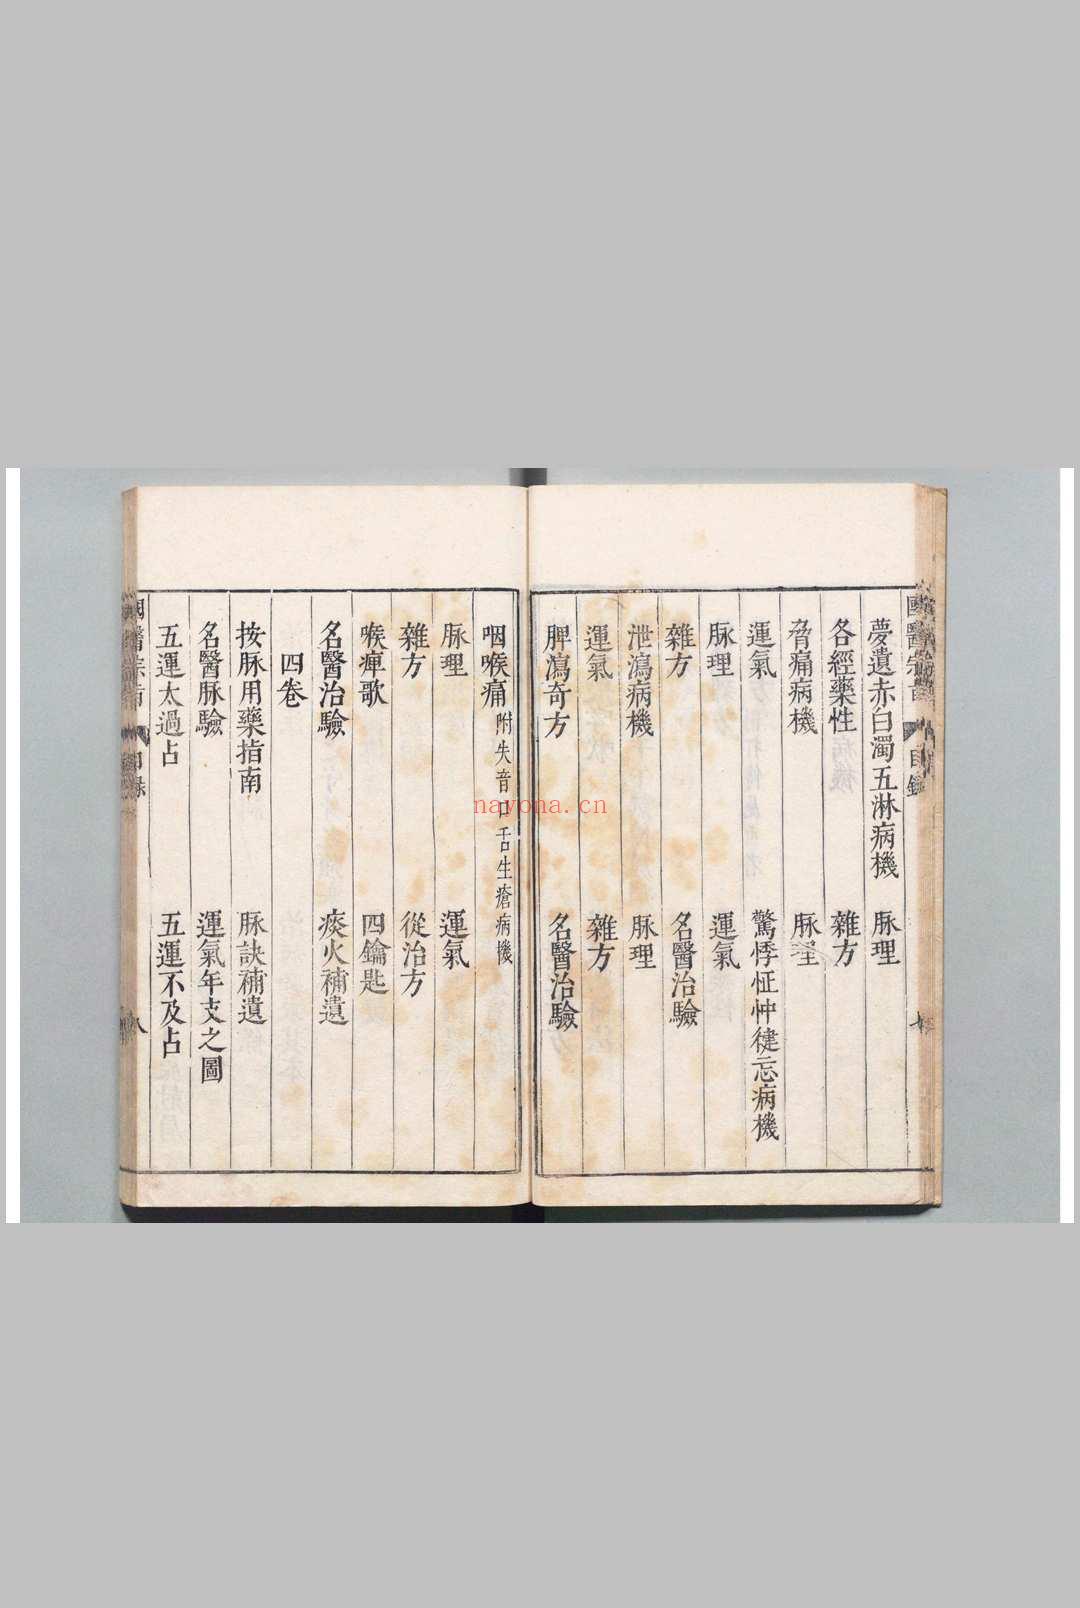 國醫宗旨 目錄
夢遺赤白濁五淋病機 脉理
各經藥性 雜方
脅痛病機 脉理
運氣 驚悸怔忡健忘病機
脉理 運氣
雜方 名醫治驗
泄瀉病機 脉理
運氣 雜方
脾瀉奇方 名醫治驗
咽喉痛 附失音口舌生瘡病機
脉理 運氣
雜方 從治方
喉痺歌 四鑰匙
名醫治驗 痰火補遺
四卷
按脉用藥指南 脉訣補遺
名醫脉驗 運氣年支之圖
五運太過占 五運不及占
國醫宗旨 目錄 八
nayona.cn